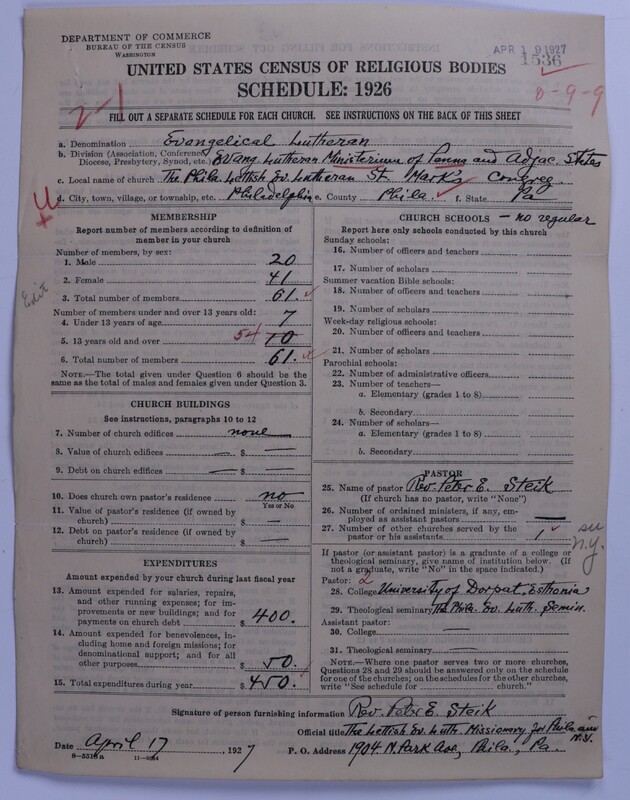 DEPARTMENT OF COMMERCE
BUREAU OF THE CENSUS
WASHINGTON
APR 19 1927
1536
UNITED STATES CENSUS OF RELIGIOUS BODIES
SCHEDULE: 1926
2-1
8-9-9
FILL OUT A SEPARATE SCHEDULE FOR EACH CHURCH. SEE INSTRUCTIONS ON THE BACK OF THIS SHEET
a. Denomination Evangelical Lutheran
b. Division (Association, Conference, Diocese, Presbytery, Synod, etc.) Evang. Lutheran Ministerium of Penna and Adjac. States
c. Local name of church The Phila Lettish Ev. Lutheran St. Mark's Congreg.
d. City, town, village, or township, etc. Philadelphia e. County Phila. f. State Pa
MEMBERSHIP
Report number of members according to definition of member in your church
Number of members, by sex:
1. Male 20
2. Female 41
3. Total number of members 61.
Edit
Number of members under and over 13 years old:
4. Under 13 years of age 7
5. 13 years old and over 54 10
6. Total number of members 61.
NOTE.—The total given under Question 6 should be the same as the total of males and females given under Question 3.
CHURCH BUILDINGS
See instructions, paragraphs 10 to 12
7. Number of church edifices none
8. Value of church edifices — $ —
9. Debt on church edifices — $ —
10. Does church own pastor's residence no
Yes or No
11. Value of pastor's residence (if owned by church) $ —
12. Debt on pastor's residence (if owned by church) — $ —
EXPENDITURES
Amount expended by your church during last fiscal year
13. Amount expended for salaries, repairs, and other running expenses; for improvements or new buildings; and for payments on church debt $ 400.
14. Amount expended for benevolences, including home and foreign missions; for denominational support; and for all other purposes $ 50.
15. Total expenditures during year $ 450.
CHURCH SCHOOLS — no regular
Report here only schools conducted by this church
Sunday schools:
16. Number of officers and teachers
17. Number of scholars
Summer vacation Bible schools:
18. Number of officers and teachers
19. Number of scholars
Week-day religious schools:
20. Number of officers and teachers
21. Number of scholars
Parochial schools:
22. Number of administrative officers
23. Number of teachers—
a. Elementary (grades 1 to 8)
b. Secondary
24. Number of scholars—
a. Elementary (grades 1 to 8)
b. Secondary
PASTOR
25. Name of pastor Rev. Peter E. Steik
(If church has no pastor, write "None")
26. Number of ordained ministers, if any, employed as assistant pastors —
27. Number of other churches served by the pastor or his assistants 1
N.Y.
If pastor (or assistant pastor) is a graduate of a college or theological seminary, give name of institution below. (If not a graduate, write "No" in the space indicated.)
Pastor: 2
28. College University of Dorpat, Esthonia
29. Theological seminary The Phila. Ev. Luth. Semin.
Assistant pastor:
30. College —
31. Theological seminary —
NOTE.—Where one pastor serves two or more churches, Questions 28 and 29 should be answered only on the schedule for one of the churches; on the schedules for the other churches, write "See schedule for church."
Signature of person furnishing information Rev. Peter E. Steik
Official title The Lettish Ev. Luth. Missionary for Phila. and N.Y.
Date April 17, 1927
P. O. Address 1904 N. Park Ave, Phila., Pa.